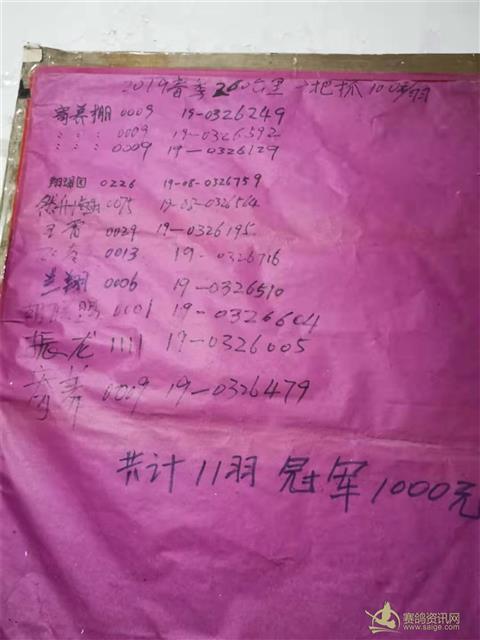 2019春季260公里一把抓100每羽
寄养棚 0009 19-0326249
〃 〃 〃 0009 19-0326592
〃 〃 〃 0009 19-0326129
翔冠园 0226 19-08-0326759
0075 19-03-0326564
王雷 0029 19-0326195
0013 19-0326716
兰翔 0006 19-0326510
0001 19-0326604
振龙 1111 19-0326005
寄养 0009 19-0326479
共计11羽 冠军1000元
赛鸽资讯网
www.saige.com